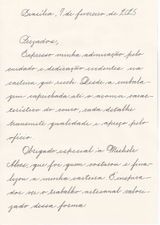 Brasília, 9 de fevereiro de 2025
Prezados,
Expresso minha admiração pelo
cuidado e dedicação evidentes na
carteira que recebi. Desde a embala-
gem caprichada até o aroma carac-
terístico do couro, cada detalhe
transmite qualidade e apreço pelo
ofício.
Obrigado especial à Michele
Alves, que foi quem costurou e fina-
lizou a minha carteira. É inspira-
dor ver o trabalho artesanal valori-
zado dessa forma